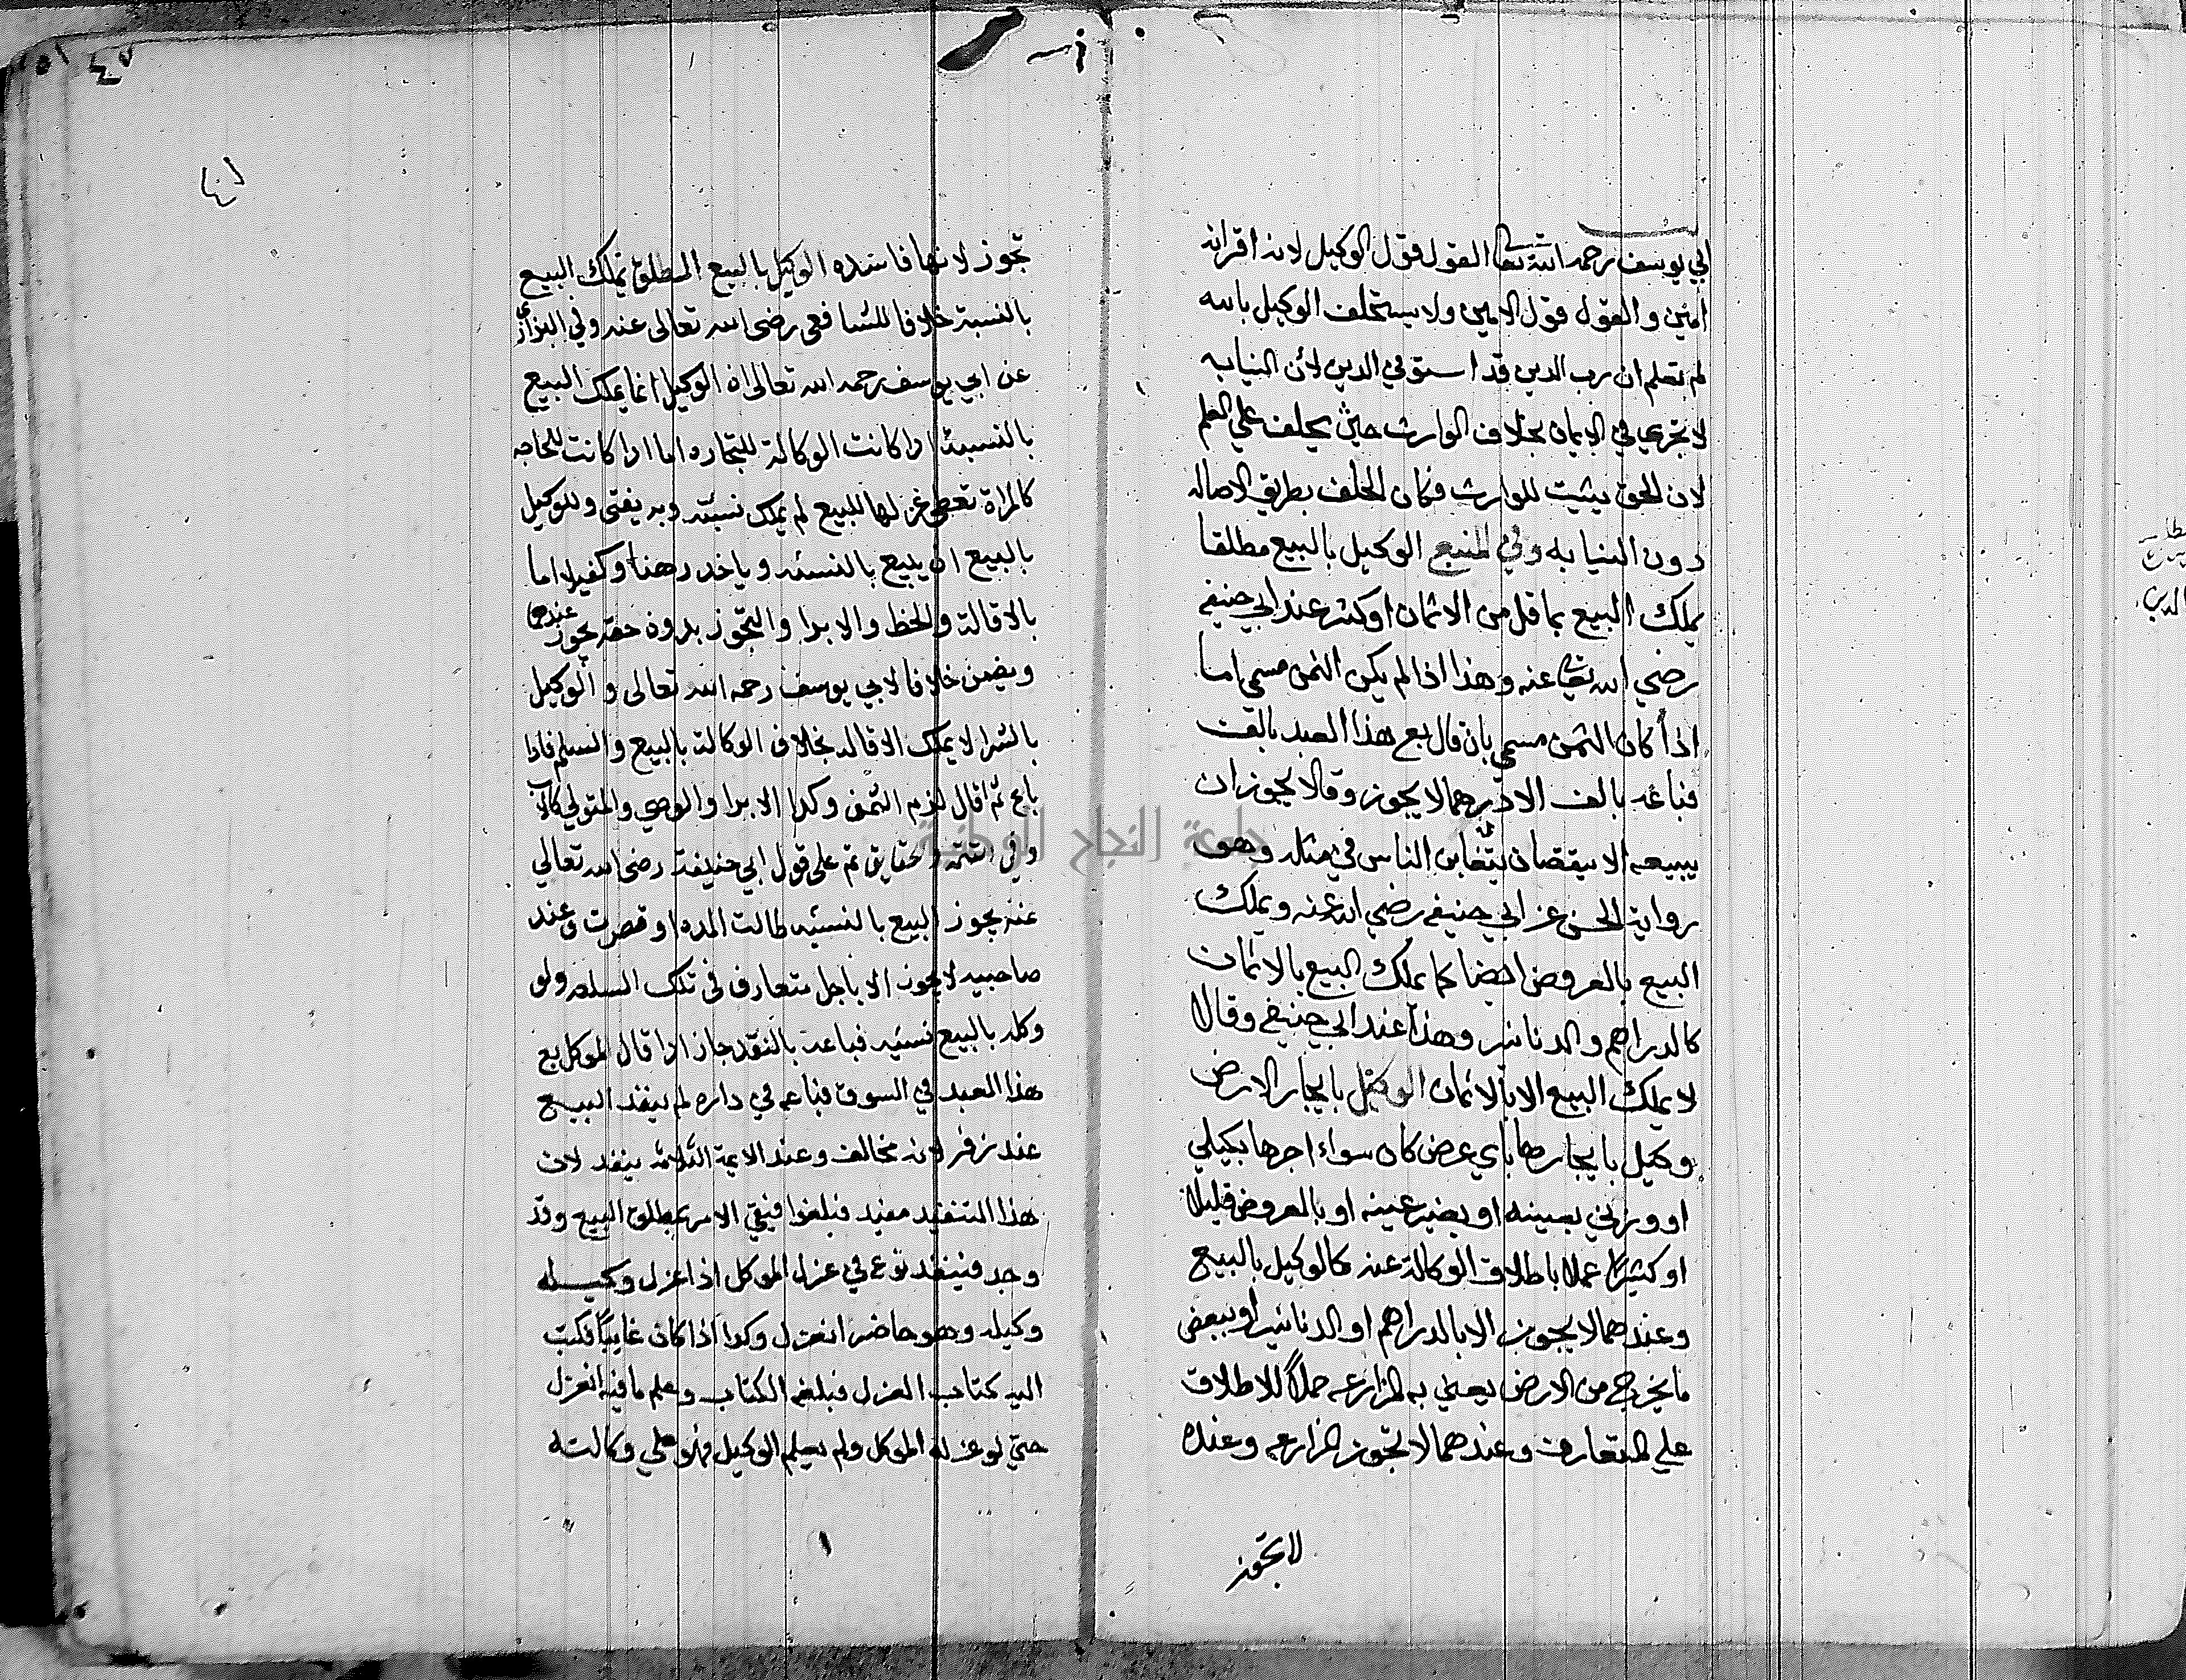 ابي يوسف رحمه الله تعالى القول قول الوكيل لانه اقرانه
امين والقول قول الامين ولا يستحلف الوكيل بالله
لم تعلم ان رب الدين قد استوفي الدين لأن النيابه
لا تجري في الايمان بخلاف الوارث حيث يحلف علي العلم
لان الحق يثبت للوارث فكان الحلف بطريق الاصاله
دون النيابه وفي المنبع الوكيل بالبيع مطلقا
يملك البيع بما قل من الاثمان او كثر عند ابي حنيفه
رضي الله تعالى عنه وهذا اذا لم يكن الثمن مسمي اما
اذا كان الثمن مسمي بان قال بع هذا العبد بالف
فباعه بالف الا درهما لا يجوز وقالا لا يجوز ان
يبيعه الا بنقصان يتغابن الناس في مثله وهو
رواية الحسن عن ابي حنيفه رضي الله عنه ويملك
البيع بالعروض ايضا كما يملك البيع بالاثمان
كالدراهم والدنانير وهذا عند ابي حنيفه وقالا
لا يملك البيع الا بالاثمان الوكيل بايجار الارض
وكيل بايجارها باي عرض كان سواء اجرها بكيلي
او وزني بعينه او بغير عينه او بالعروض قليلا
او كثيرا عملا باطلاق الوكالة عنه كالوكيل بالبيع
وعندهما لا يجوز الا بالدراهم او الدنانير او ببعض
ما يخرج من الارض يعني به المزارعه حملا للاطلاق
علي المتعارف وعندهما لا تجوز المزارعه وعنده
لا تجوز
تجوز لانها فاسده الوكيل بالبيع المطلق يملك البيع
بالنسية خلافا للشافعي رضي الله تعالى عنه وفي البزازي
عن ابي يوسف رحمه الله تعالى ان الوكيل انما يملك البيع
بالنسيئة اذا كانت الوكالة للتجاره اما اذا كانت للحاجه
كالمراة تعطي غزلها للبيع لم يملك نسيئته وبه يفتى وللوكيل
بالبيع ان يبيع بالنسئه وياخد رهنا وكفيلا اما
بالاقالة والحط والابرا والتجوز بدون حقه يجوز عندهما
ويضمن خلافا لابي يوسف رحمه الله تعالى والوكيل
بالشرا لا يملك الاقاله بخلاف الوكالة بالبيع والسلم فاذا
باع ثم اقال لزم الثمن وكدا الابرا والوصي والمتولي كالاب
وفي التتمه والحقايق تم على قول ابي حنيفة رضي الله تعالي
عنه يجوز البيع بالنسئيه طالت المده او قصرت وعند
صاحبيه لا يجوز الا باجل متعارف في تلك السلعه ولو
وكله بالبيع نسئيه فباعه بالنقد جاز اذا قال الموكل بع
هذا العبد في السوق فباعه في داره لم ينفذ البيع
عند زفر لانه مخالف وعند الايمة الثلاثه ينفد لان
هذا التنفيد مفيد فبلغوا فبقي الامر بمطلق البيع وقد
وجد فينفد نوع في عزل الموكل اذا عزل وكيله
وكيله وهو حاضر انعزل وكدا اذا كان غايبا فكتب
اليه كتاب العزل فبلغه الكتاب وعلم ما فيه انعزل
حتي لو عزله الموكل ولم يعلم الوكيل فهو علي وكالته
جامعة النجاح الوطنية